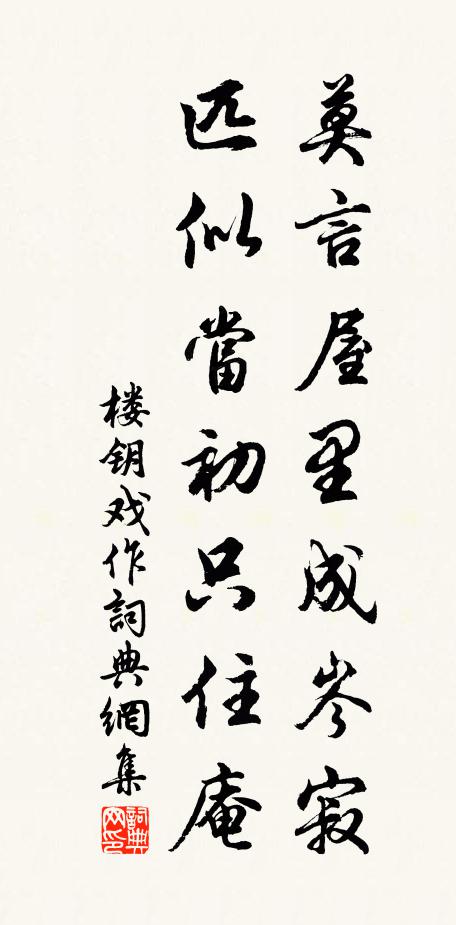 莫言屋里成岑寂
匹似當初只住庵
楼钥戏作詞典網集
詞典网印